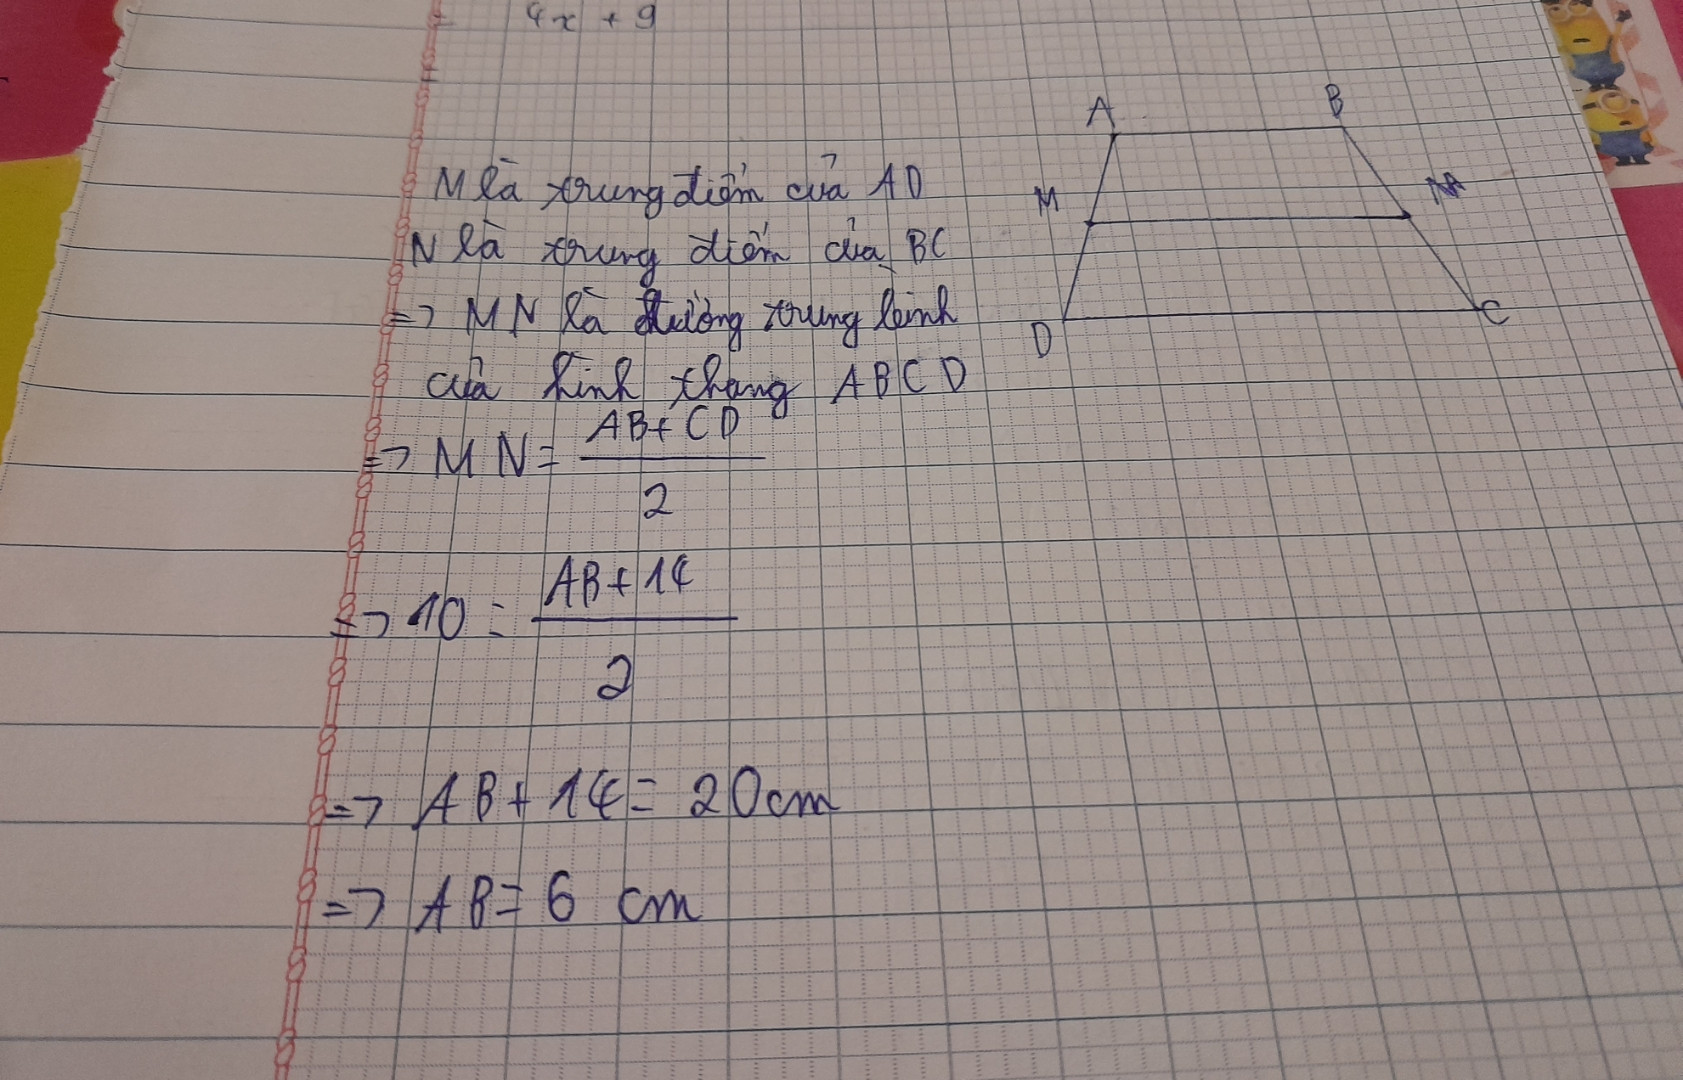 4x + 9
A B
M là trung điểm của AD
M
N là trung điểm của BC
=> MN là đường trung bình
D C
của hình thang ABCD
=> MN = AB + CD
2
=> 10 = AB + 14
2
=> AB + 14 = 20cm
=> AB = 6 cm